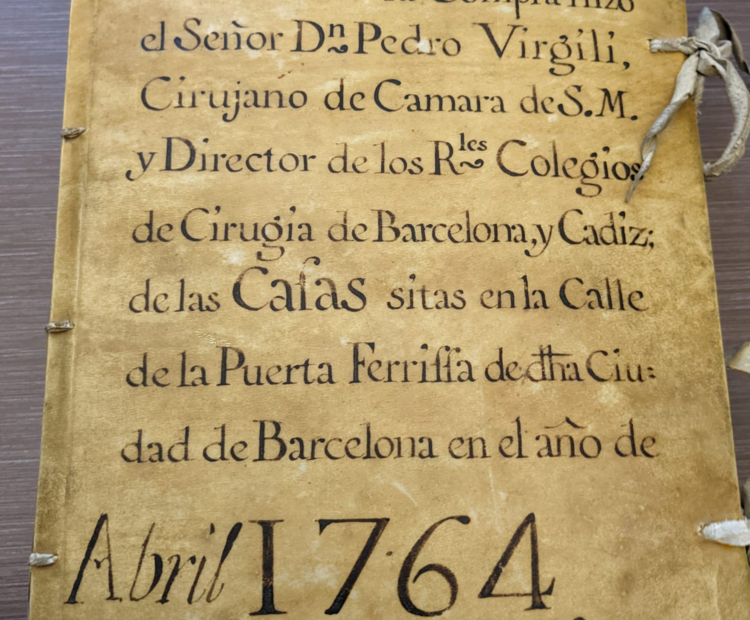 la Compra hizo
el Señor Dⁿ Pedro Virgili,
Cirujano de Camara de S. M.
y Director de los Rˡᵉˢ Colegios
de Cirugia de Barcelona, y Cadiz;
de las Caſas sitas en la Calle
de la Puerta Ferriſſa de dħa Ciu:
dad de Barcelona en el año de
Abril 1764